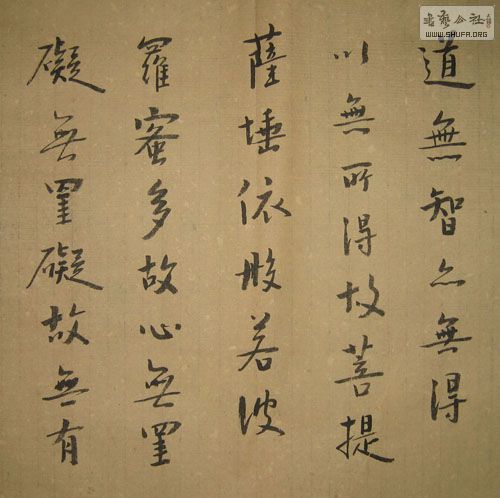 道無智亦無得
以無所得故菩提
薩埵依般若波
羅蜜多故心無罣
礙無罣礙故無有
WWW.SHUFA.ORG